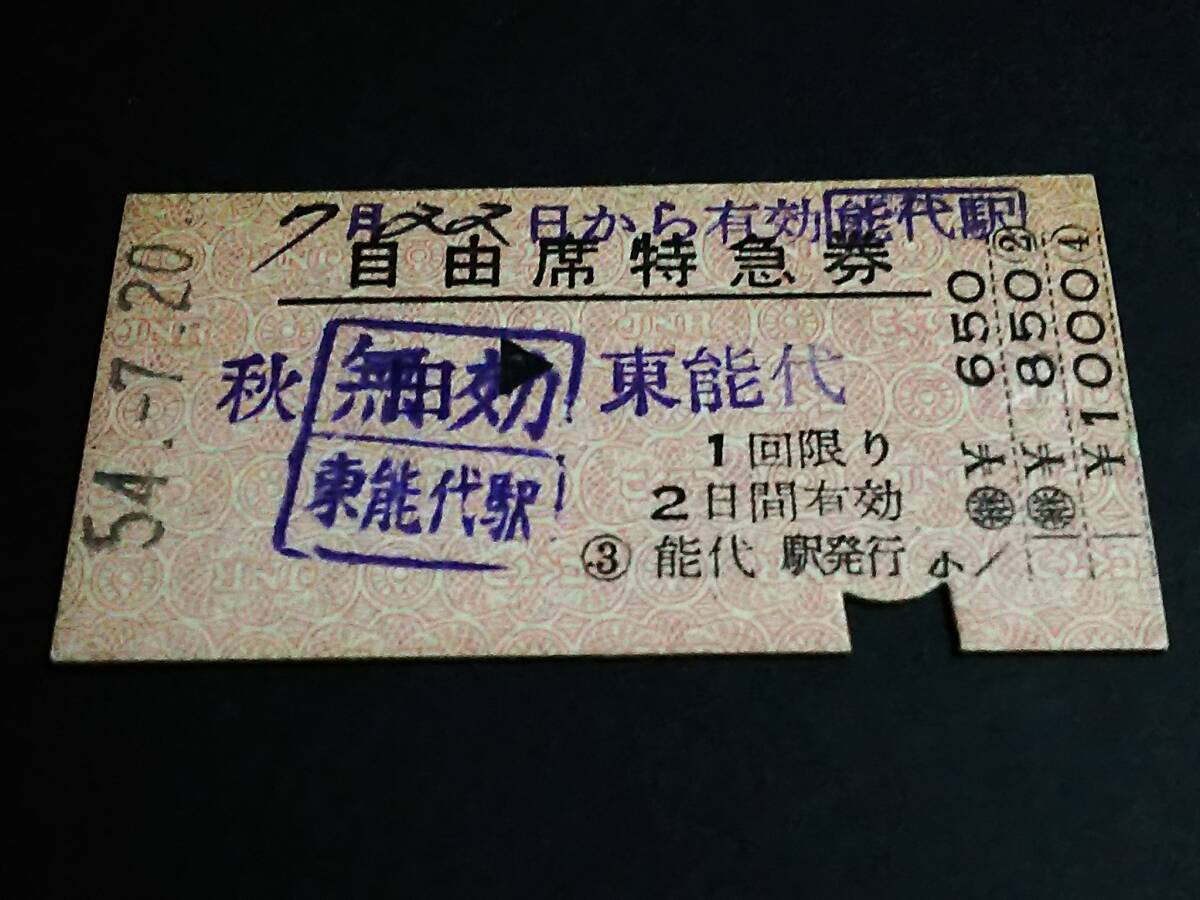 54.-7.20
7月22日から有効 能代駅
自由席特急券
秋田 ▶ 東能代
無効
東能代駅
1回限り
2日間有効
③ 能代 駅発行
¥650
② ¥850
④ ¥1000
JNR